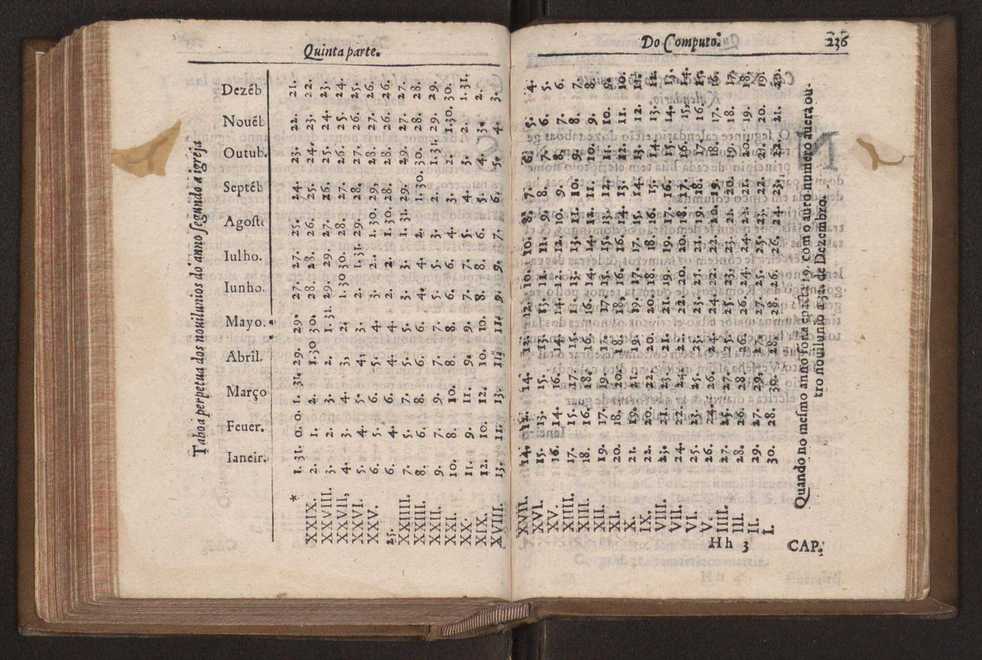 Quinta parte.
Taboa perpetua dos nouilunios do anno segundo a igreja
Dezéb 21. 22. 23. 24. 25. 26. 26. 27. 28. 29. 30. 1.31. 2. 3.
Nouéb 22. 23. 24. 25. 26. 27. 26. 27. 28. 29. 1.30. 2. 3. 4.
Outub. 23. 24. 25. 26. 27. 28. 28. 29. 30. 1.31. 2. 3. 4. 5.
Septéb 24. 25. 26. 27. 28. 29. 28. 29. 1.30. 2. 3. 4. 5. 6.
Agosto 25. 26. 27. 28. 29. 1.30. 1.30. 1.31. 2. 3. 4. 5. 6. 7.
Iulho. 27. 28. 29. 30. 1.31. 2. 2. 3. 4. 5. 6. 7. 8. 9.
Iunho. 27. 28. 29. 1.30. 2. 3. 2. 3. 4. 5. 6. 7. 8. 9.
Mayo. 29. 30. 1.31. 2. 3. 4. 4. 5. 6. 7. 8. 9. 10. 11.
Abril. 29. 1.30 2. 3. 4. 5. 4. 5. 6. 7. 8. 9. 10. 11.
Março 1.31. 2. 3. 4. 5. 6. 6. 7. 8. 9. 10. 11. 12. 13.
Feuer. 0.0. 1. 2. 3. 4. 5. 4. 5. 6. 7. 8. 9. 10. 11.
Ianeir. 1.31. 2. 3. 4. 5. 6. 6. 7. 8. 9. 10. 11. 12. 13.
* XXIX. XXVIII. XXVII, XXVI. XXV. 25. XXIIII. XXIII. XXII. XXI. XX. XIX. XVIII.
Do Computo. 236
4. 5. 6. 7. 8. 9. 10. 11. 12. 13. 14. 15. 16. 17. 18. 19. 20.
5. 6. 7. 8. 9. 10. 11. 12. 13. 14. 15. 16. 17. 18. 19. 20. 21.
6. 7. 8. 9. 10. 11. 12. 13. 14. 15. 16. 17. 18. 19. 20. 21. 22.
7. 8. 9. 10. 11. 12. 13. 14. 15. 16. 17. 18. 19. 20. 21. 22. 23.
8. 9. 10. 11. 12. 13. 14. 15. 16. 17. 18. 19. 20. 21. 22. 23. 24.
10. 11. 12. 13. 14. 15. 16. 17. 18. 19. 20. 21. 22. 23. 24. 25. 26.
10. 11. 12. 13. 14. 15. 16. 17. 18. 19. 20. 21. 22. 23. 24. 25. 26.
12. 13. 14. 15. 16. 17. 18. 19. 20. 21. 22. 23. 24. 25. 26. 27. 28.
12. 13. 14. 15. 16. 17. 18. 19. 20. 21. 22. 23. 24. 25. 26. 27. 28.
14. 15. 16. 17. 18. 19. 20. 21. 22. 23. 24. 25. 26. 27. 28. 29. 30.
12. 13. 14. 15. 16. 17. 18. 19. 20. 21. 22. 23. 24. 25. 26. 27. 28.
14. 15. 16. 17. 18. 19. 20. 21. 22. 23. 24. 25. 26. 27. 28. 29. 30.
XVII. XVI. XV. XIIII. XIII. XII. XI. X. IX. VIII. VII. VI. V. IIII. III. II. I.
Quando no mesmo anno for a epacta 19. com o auro numero auera ou-
tro nouilunio a 31. de Dezembro.
Hh 3 CAP.